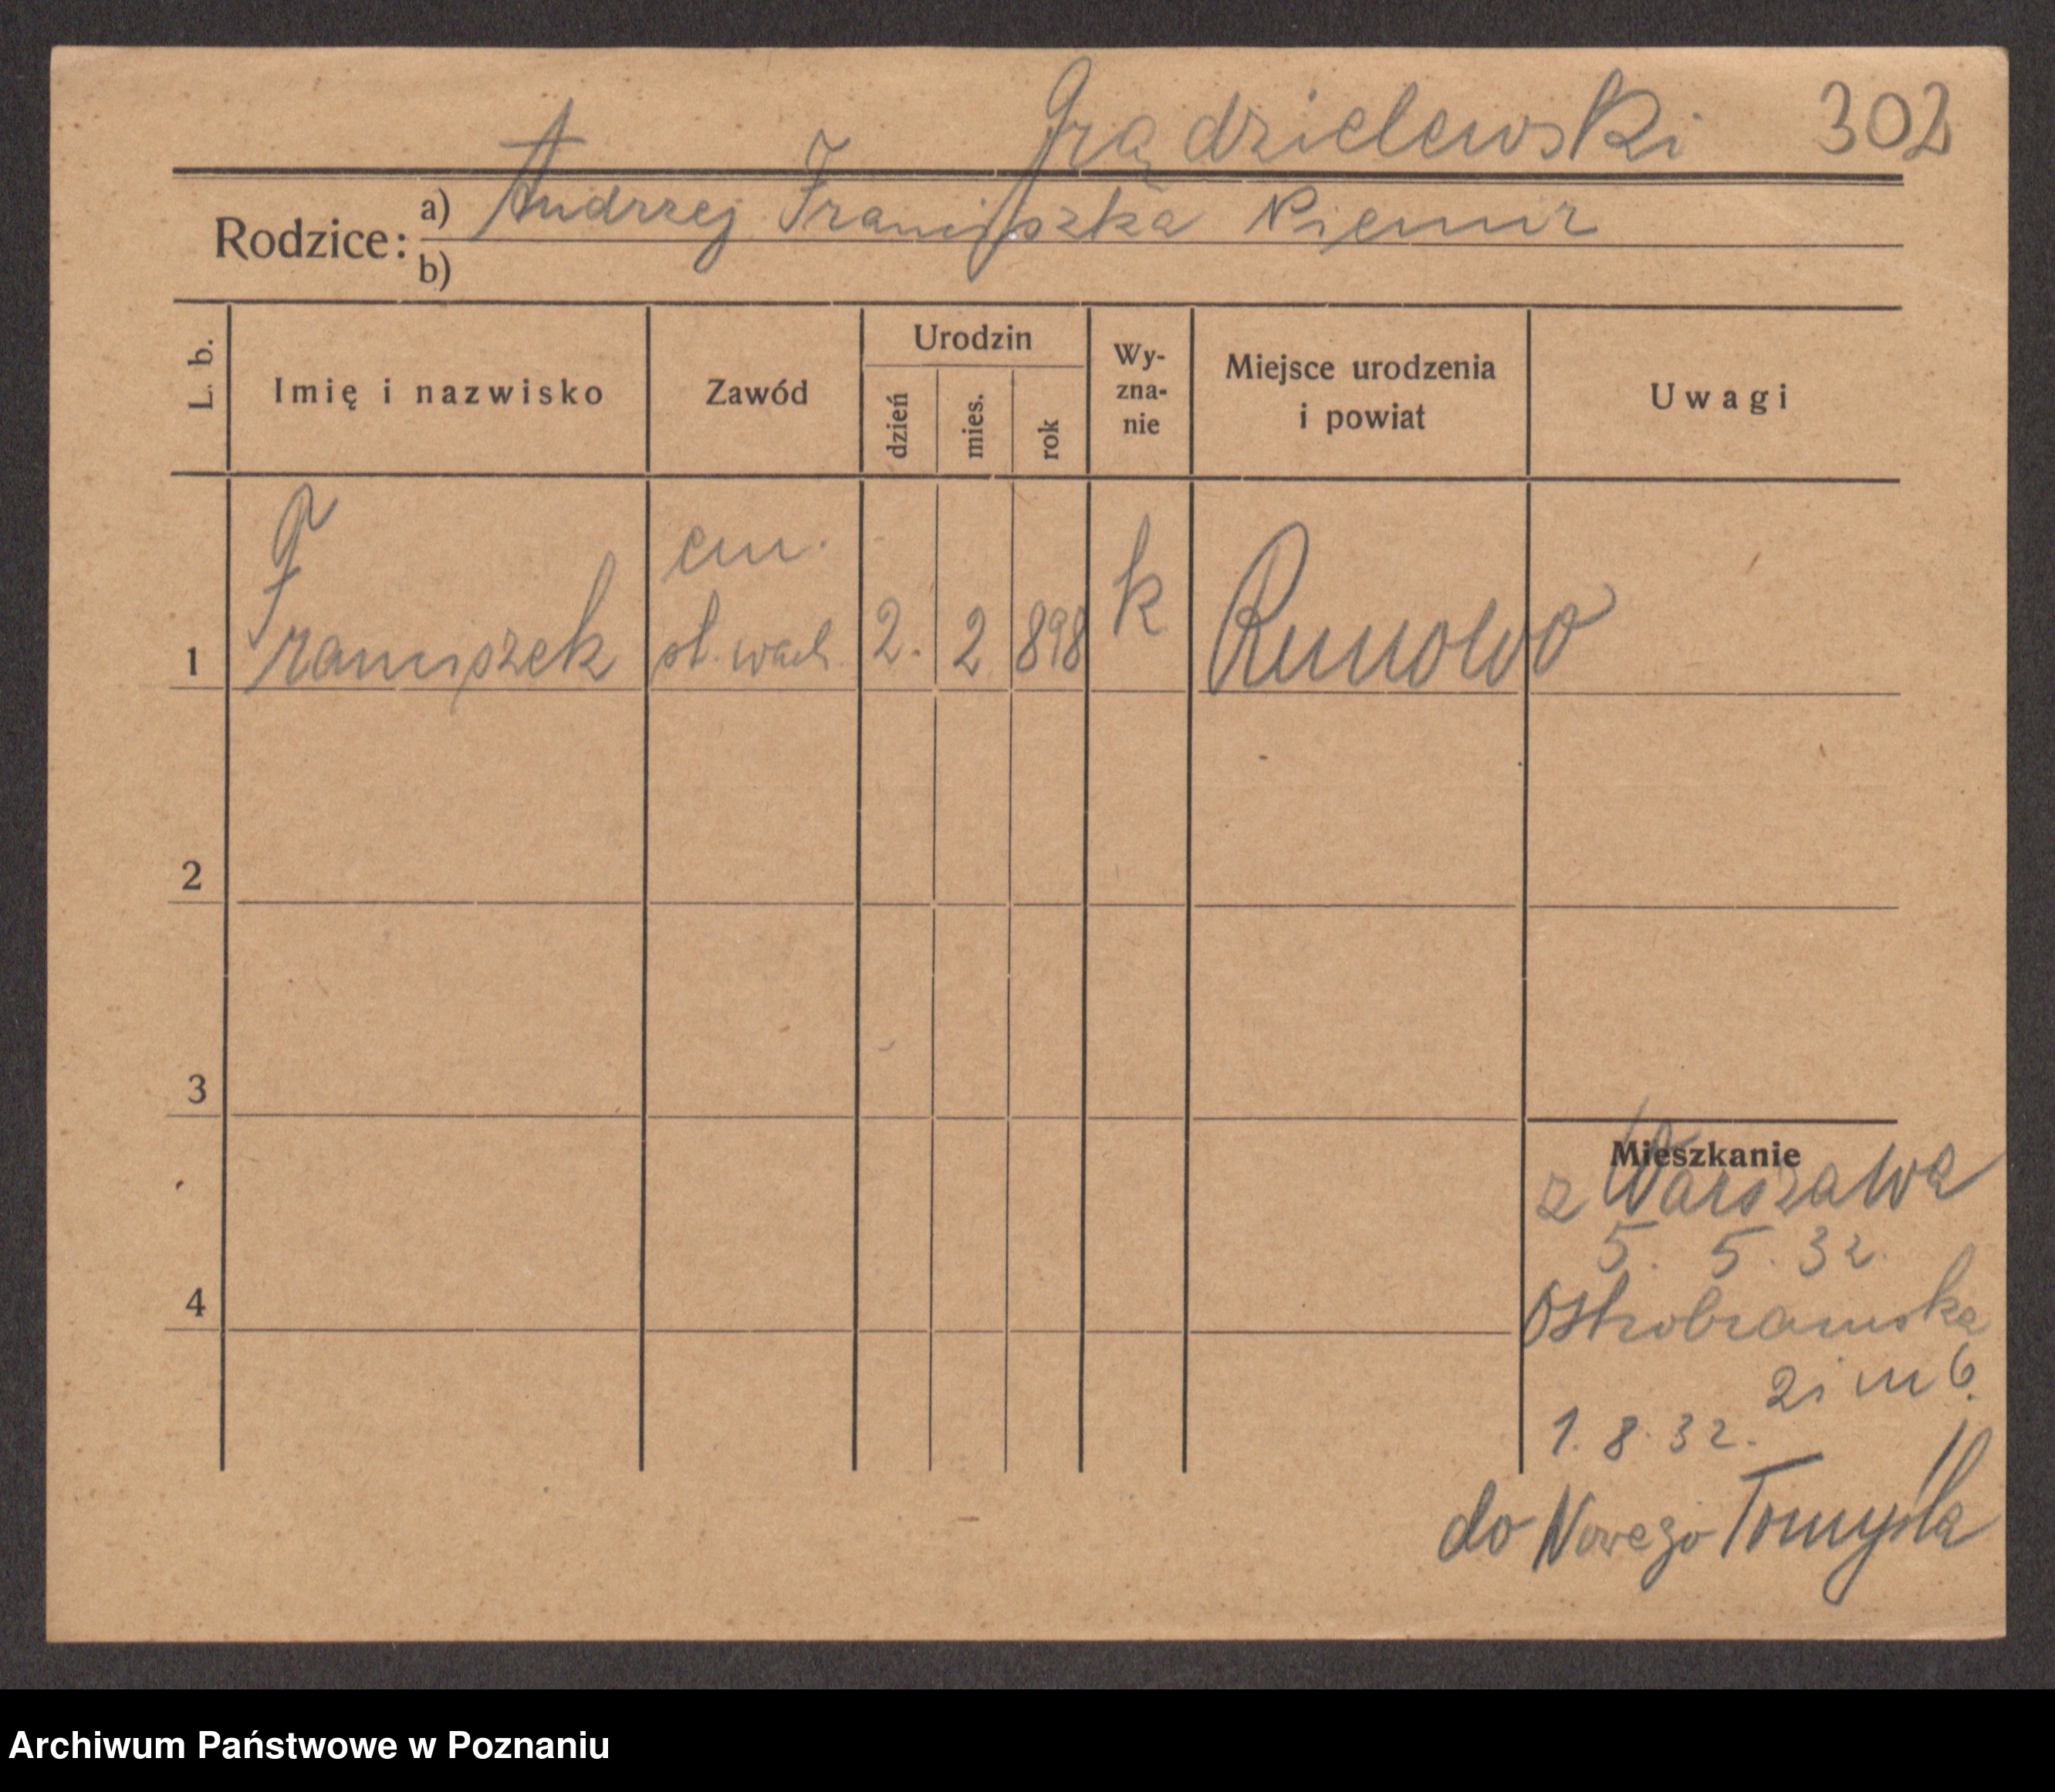 Grądzielewski 302
Rodzice: a) Andrzej Franciszka Niemir
b)
L. b. Imię i nazwisko Zawód Urodzin dzień mies. rok Wy-zna-nie Miejsce urodzenia i powiat Uwagi
1 Franciszek em. st. wach. 2. 2 898 k Runowo
2
3
Mieszkanie
z Warszawa
5. 5. 32.
4
Ostrobramska
21 m 6.
1. 8. 32.
do Nowego Tomyśla
Archiwum Państwowe w Poznaniu